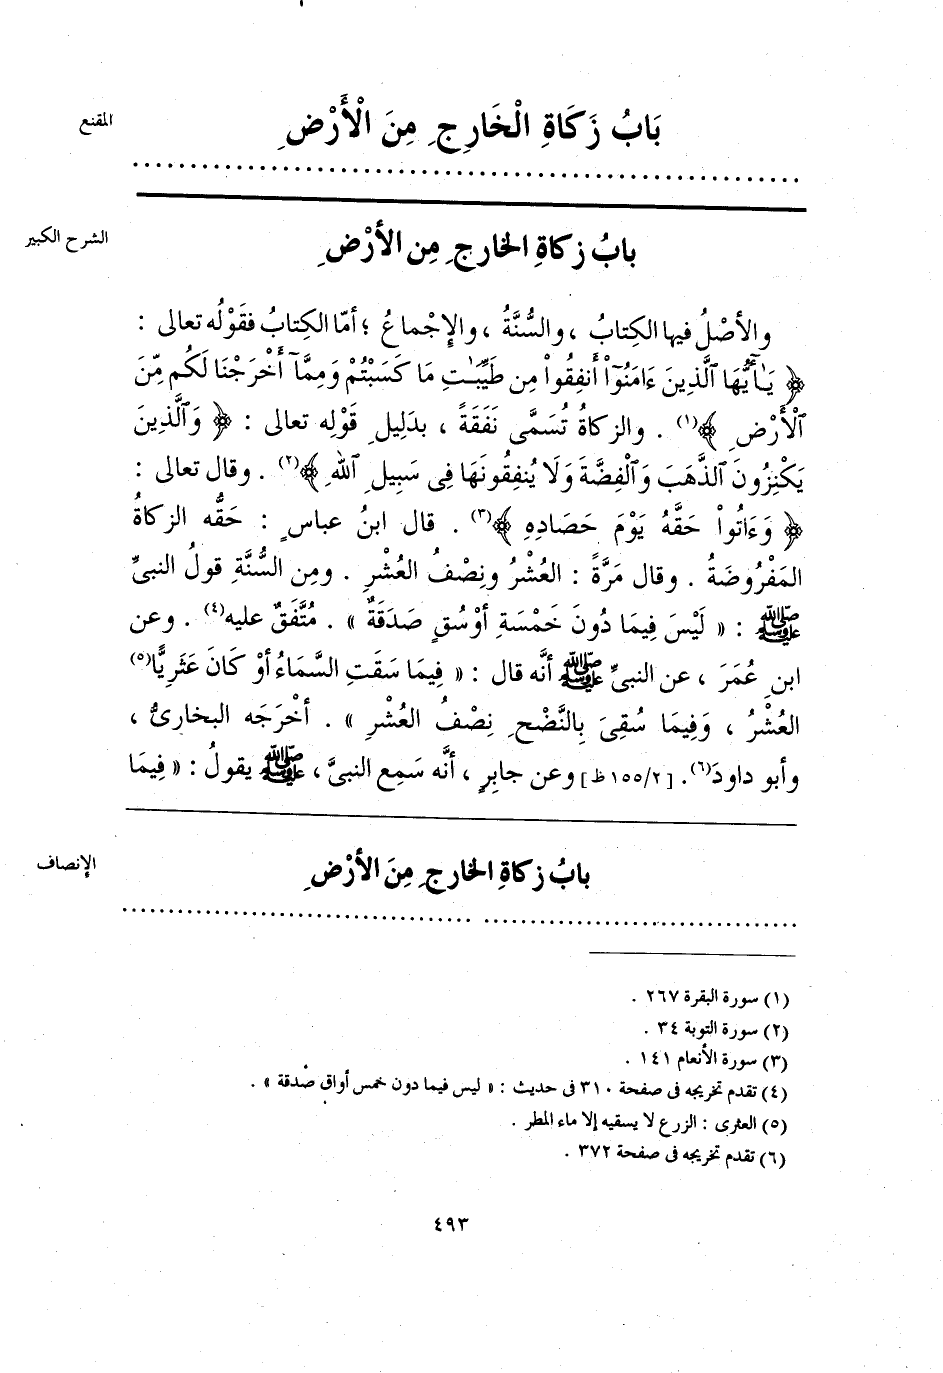 المقنع
بَابُ زَكَاةِ الْخَارِجِ مِنَ الْأَرْضِ
الشرح الكبير
بابُ زكاةِ الخارجِ مِن الأرْضِ
والأصْلُ فيها الكِتابُ ، والسُّنَّةُ ، والإِجْماعُ ؛ أمّا الكِتابُ فقَوْلُه تعالى :
﴿ يَـٰٓأَيُّهَا ٱلَّذِينَ ءَامَنُوٓاْ أَنفِقُواْ مِن طَيِّبَـٰتِ مَا كَسَبْتُمْ وَمِمَّآ أَخْرَجْنَا لَكُم مِّنَ
ٱلْأَرْضِ ﴾(١) . والزكاةُ تُسَمَّى نَفَقَةً ، بدَلِيلِ قَوْلِه تعالى : ﴿ وَٱلَّذِينَ
يَكْنِزُونَ ٱلذَّهَبَ وَٱلْفِضَّةَ وَلَا يُنفِقُونَهَا فِى سَبِيلِ ٱللهِ ﴾(٢) . وقال تعالى :
﴿ وَءَاتُواْ حَقَّهُ يَوْمَ حَصَادِهِ ﴾(٣) . قال ابنُ عباسٍ : حَقُّه الزكاةُ
المَفْرُوضَةُ . وقال مَرَّةً : العُشْرُ ونِصْفُ العُشْرِ . ومِن السُّنَّةِ قولُ النبىِّ
ﷺ : « لَيْسَ فِيمَا دُونَ خَمْسَةِ أوْسُقٍ صَدَقَةٌ » . مُتَّفَقٌ عليه(٤) . وعن
ابنِ عُمَرَ ، عن النبىِّ ﷺ أنَّه قال : « فِيمَا سَقَتِ السَّمَاءُ أوْ كَانَ عَثَرِيًّا(٥)
العُشْرُ ، وَفِيمَا سُقِىَ بِالنَّضْحِ نِصْفُ العُشْرِ » . أخْرَجَه البخارىُّ ،
وأبو داودَ(٦). [ ١٥٥/٢ظ] وعن جابرٍ ، أنَّه سَمِع النبىَّ ، ﷺ يقولُ : « فِيمَا
الإنصاف
بابُ زكاةِ الخارجِ مِنَ الأرْضِ
(١) سورة البقرة ٢٦٧ .
(٢) سورة التوبة ٣٤ .
(٣) سورة الأنعام ١٤١ .
(٤) تقدم تخريجه فى صفحة ٣١٠ فى حديث : « ليس فيما دون خمس أواق صدقة » .
(٥) العثرى : الزرع لا يسقيه إلا ماء المطر .
(٦) تقدم تخريجه فى صفحة ٣٧٢ .
٤٩٣